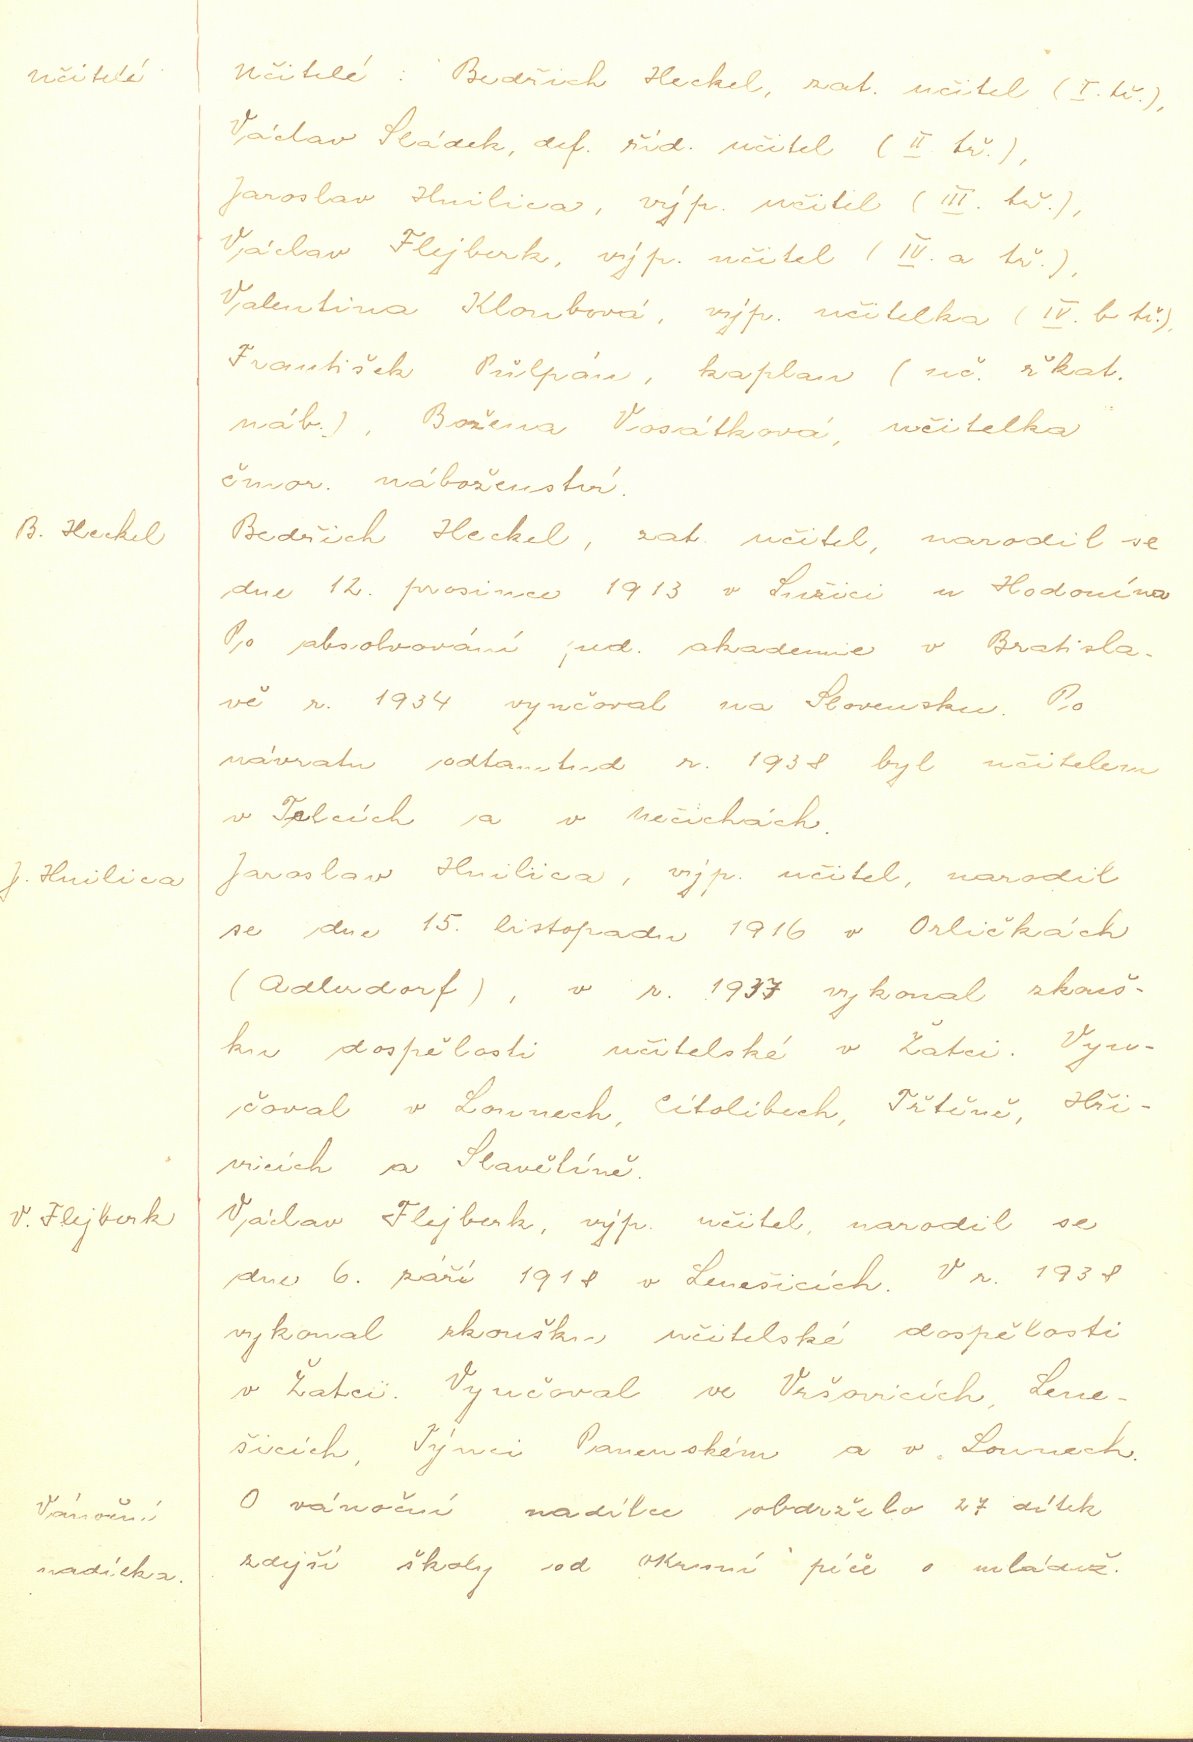 učitelé
Učitelé : Bedřich Heckel, zat. učitel (I. tř.),
Václav Sládek, def. říd. učitel (II tř.),
Jaroslav Hnilica, výp. učitel (III. tř.),
Václav Flejberk, výp. učitel (IV. a tř.),
Valentina Kloubová, výp. učitelka (IV. b tř.),
František Půlpán, kaplan (uč. řkat.
náb.), Božena Vosátková, učitelka
čmor. náboženství.
B. Heckel
Bedřich Heckel, zat. učitel, narodil se
dne 12. prosince 1913 v Lužici u Hodonína
Po absolvování ped. akademie v Bratisla-
vě r. 1934 vyučoval na Slovensku. Po
návratu odtamtud r. 1938 byl učitelem
v Telcích a v Nečichách.
J. Hnilica
Jaroslav Hnilica, výp. učitel, narodil
se dne 15. listopadu 1916 v Orličkách
(Adlerdorf), v r. 1937 vykonal zkouš-
ku dospělosti učitelské v Žatci. Vyu-
čoval v Lounech, Cítolibech, Třtěně, Hři-
vicích a Slavětíně.
V. Flejberk
Václav Flejberk, výp. učitel, narodil se
dne 6. září 1918 v Lenešicích. V r. 1938
vykonal zkoušku učitelské dospělosti
v Žatci. Vyučoval ve Vršovicích, Lene-
šicích, Týnci Panenském a v Lounech.
Vánoční
nadílka.
O vánoční nadílce obdrželo 27 dítek
zdejší školy od okresní péče o mládež.